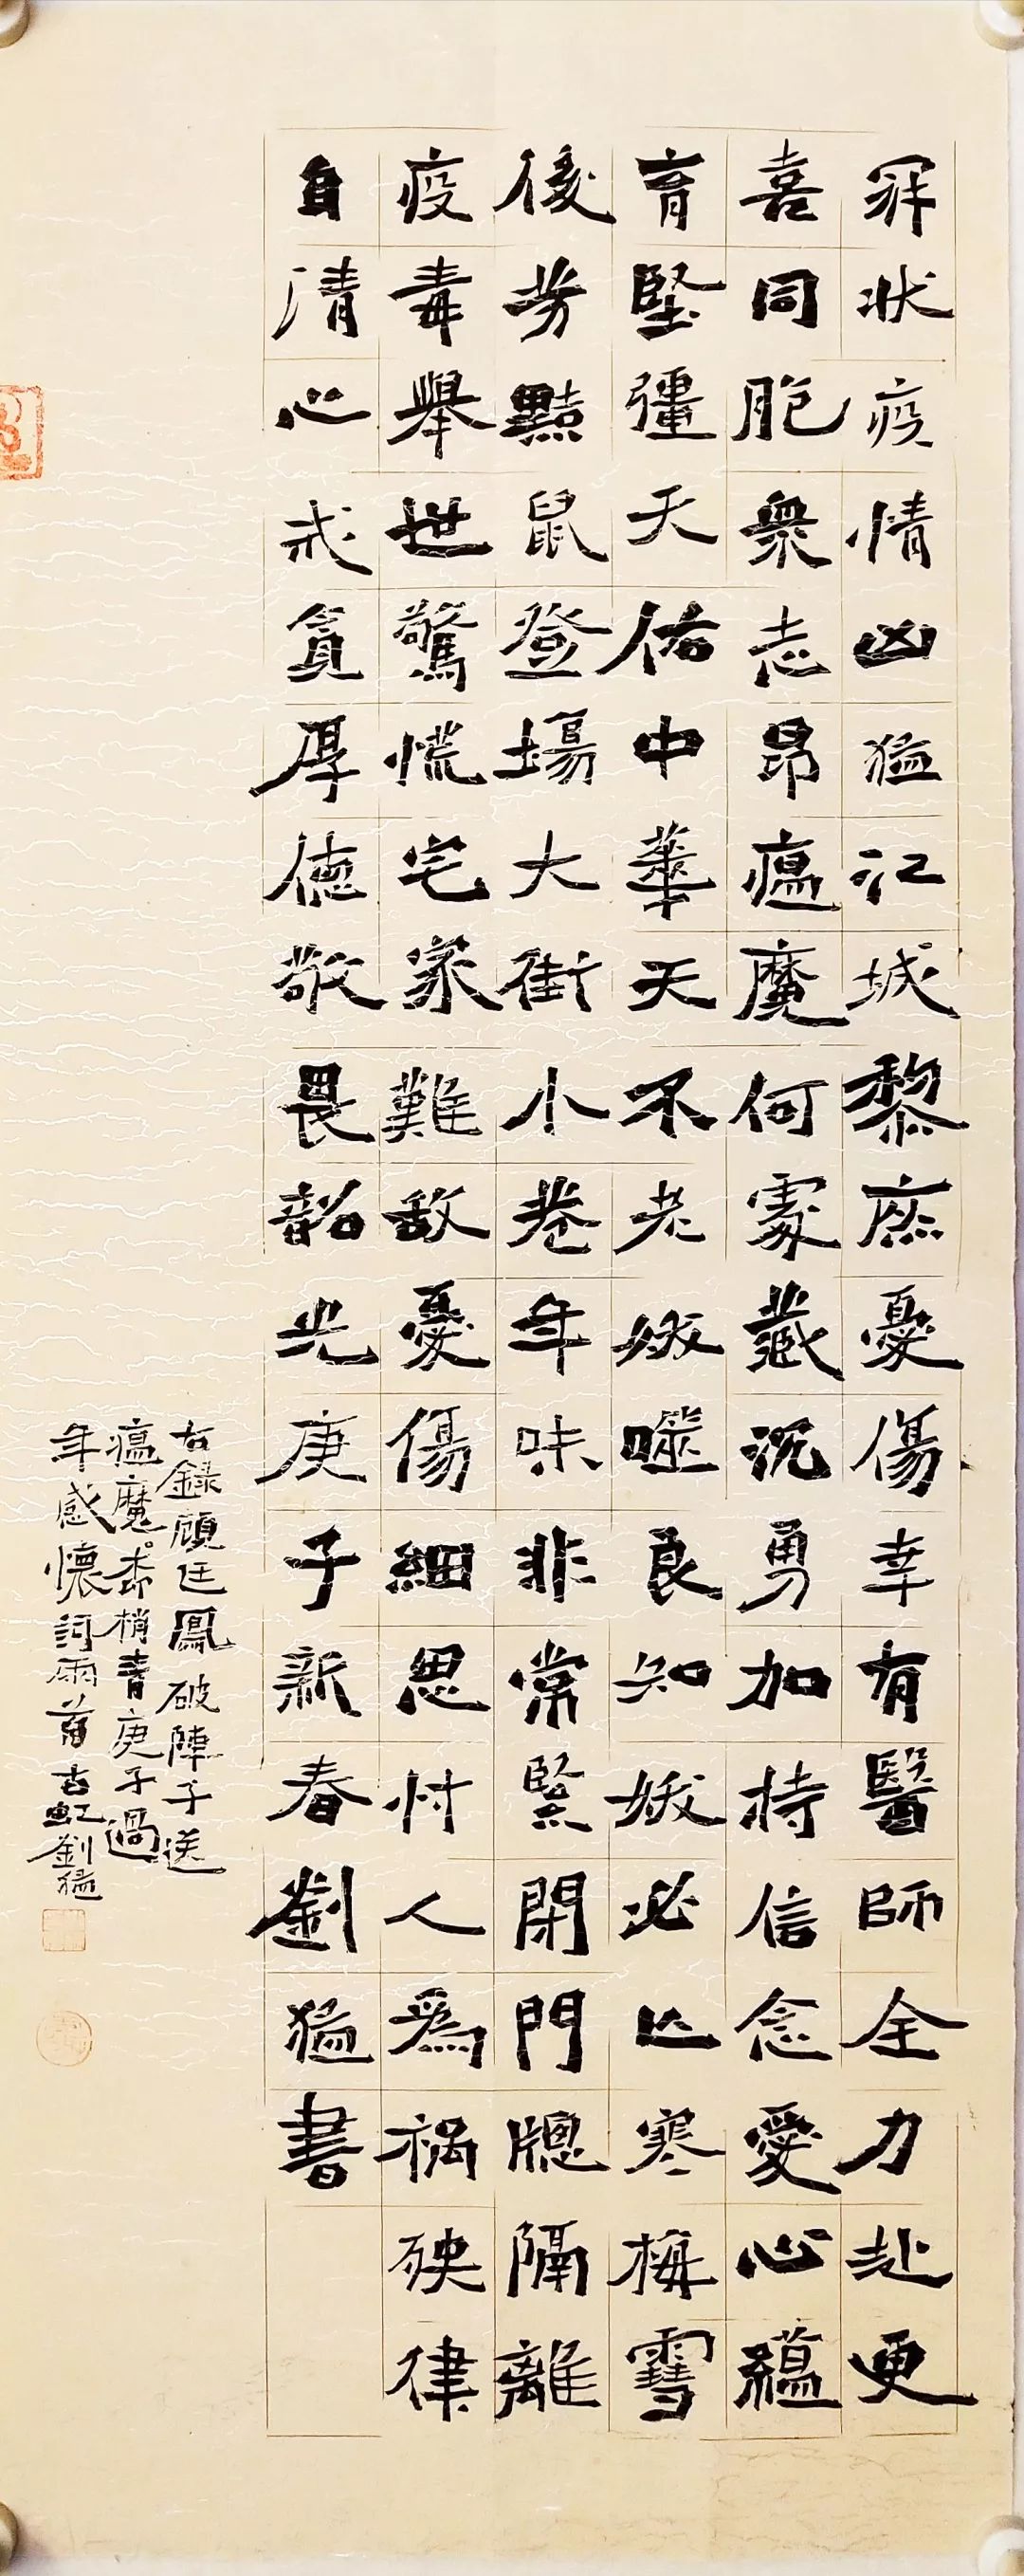 冠状疫情凶猛江城黎庶憂傷幸有醫師全力赴更
喜同胞衆志昂瘟魔何處藏沉勇加持信念愛心蘊
育堅彊天佑中華天不老噬良知必亡寒梅雪
後芳黠鼠登場大街小巷年味非常緊閉門牕隔離
疫毒舉世驚慌宅家難敵憂傷細思忖人爲禍殃律
自清心戒貪厚德敬畏韶光庚子新春劉猛書
右錄顧廷鳳破陣子送
瘟魔柳梢青庚子過
年感懷詞兩首古虹劉猛